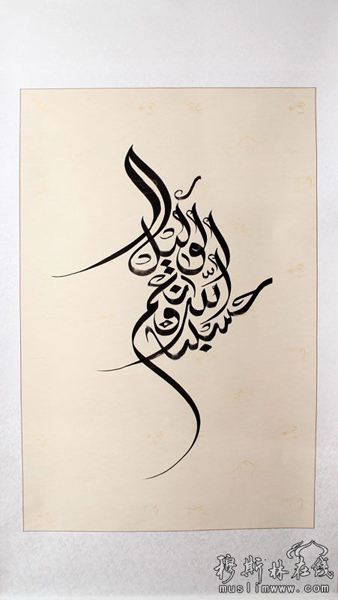 حسبنا الله ونعم الوكيل
穆斯林在线
muslimwww.com